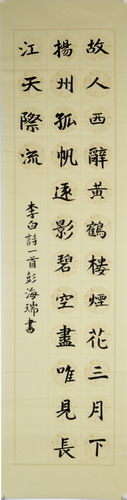 故人西辭黃鶴樓煙花三月下
揚州孤帆逐影碧空盡唯見長
江天際流
李白詩一首彭海瑞書